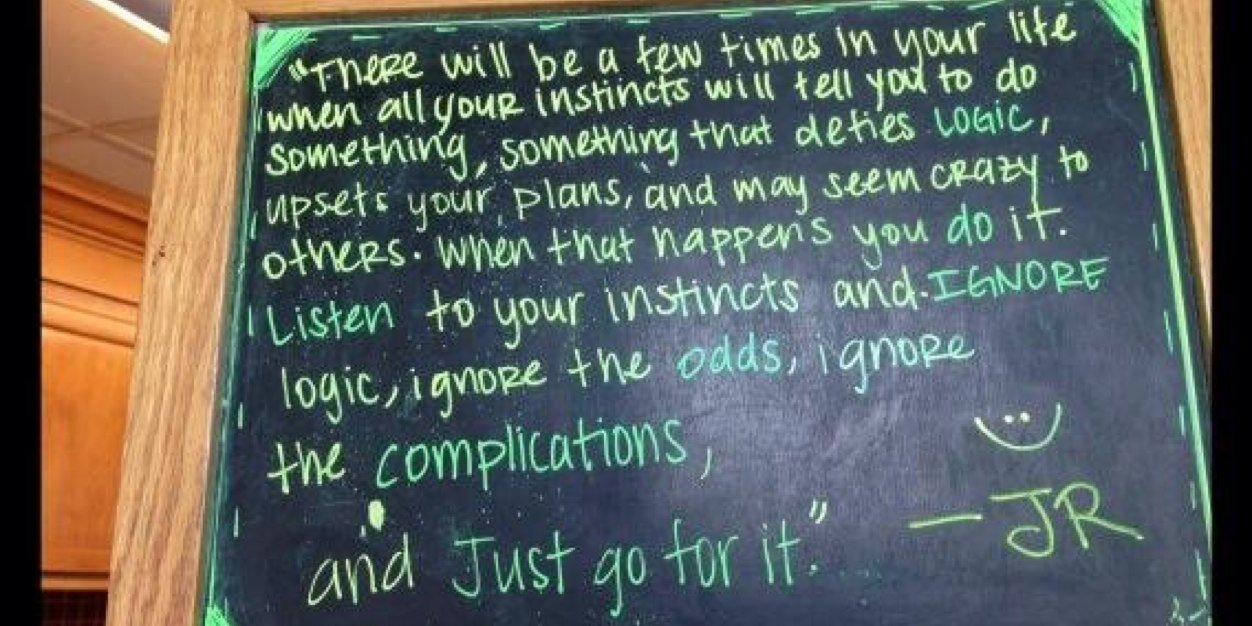 "There will be a few times in your life
when all your instincts will tell you to do
something, something that defies LOGIC,
upsets your plans, and may seem crazy to
others. When that happens you do it.
Listen to your instincts and IGNORE
logic, ignore the odds, ignore
the complications,
and Just go for it."
-JR